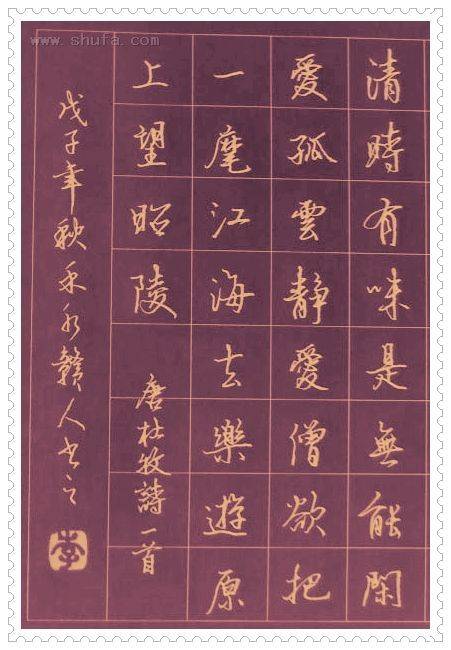 www.shufa.com
清時有味是無能閑
愛孤雲靜愛僧欲把
一麾江海去樂遊原
上望昭陵
唐杜牧詩一首
戊子年秋禾水贛人書之